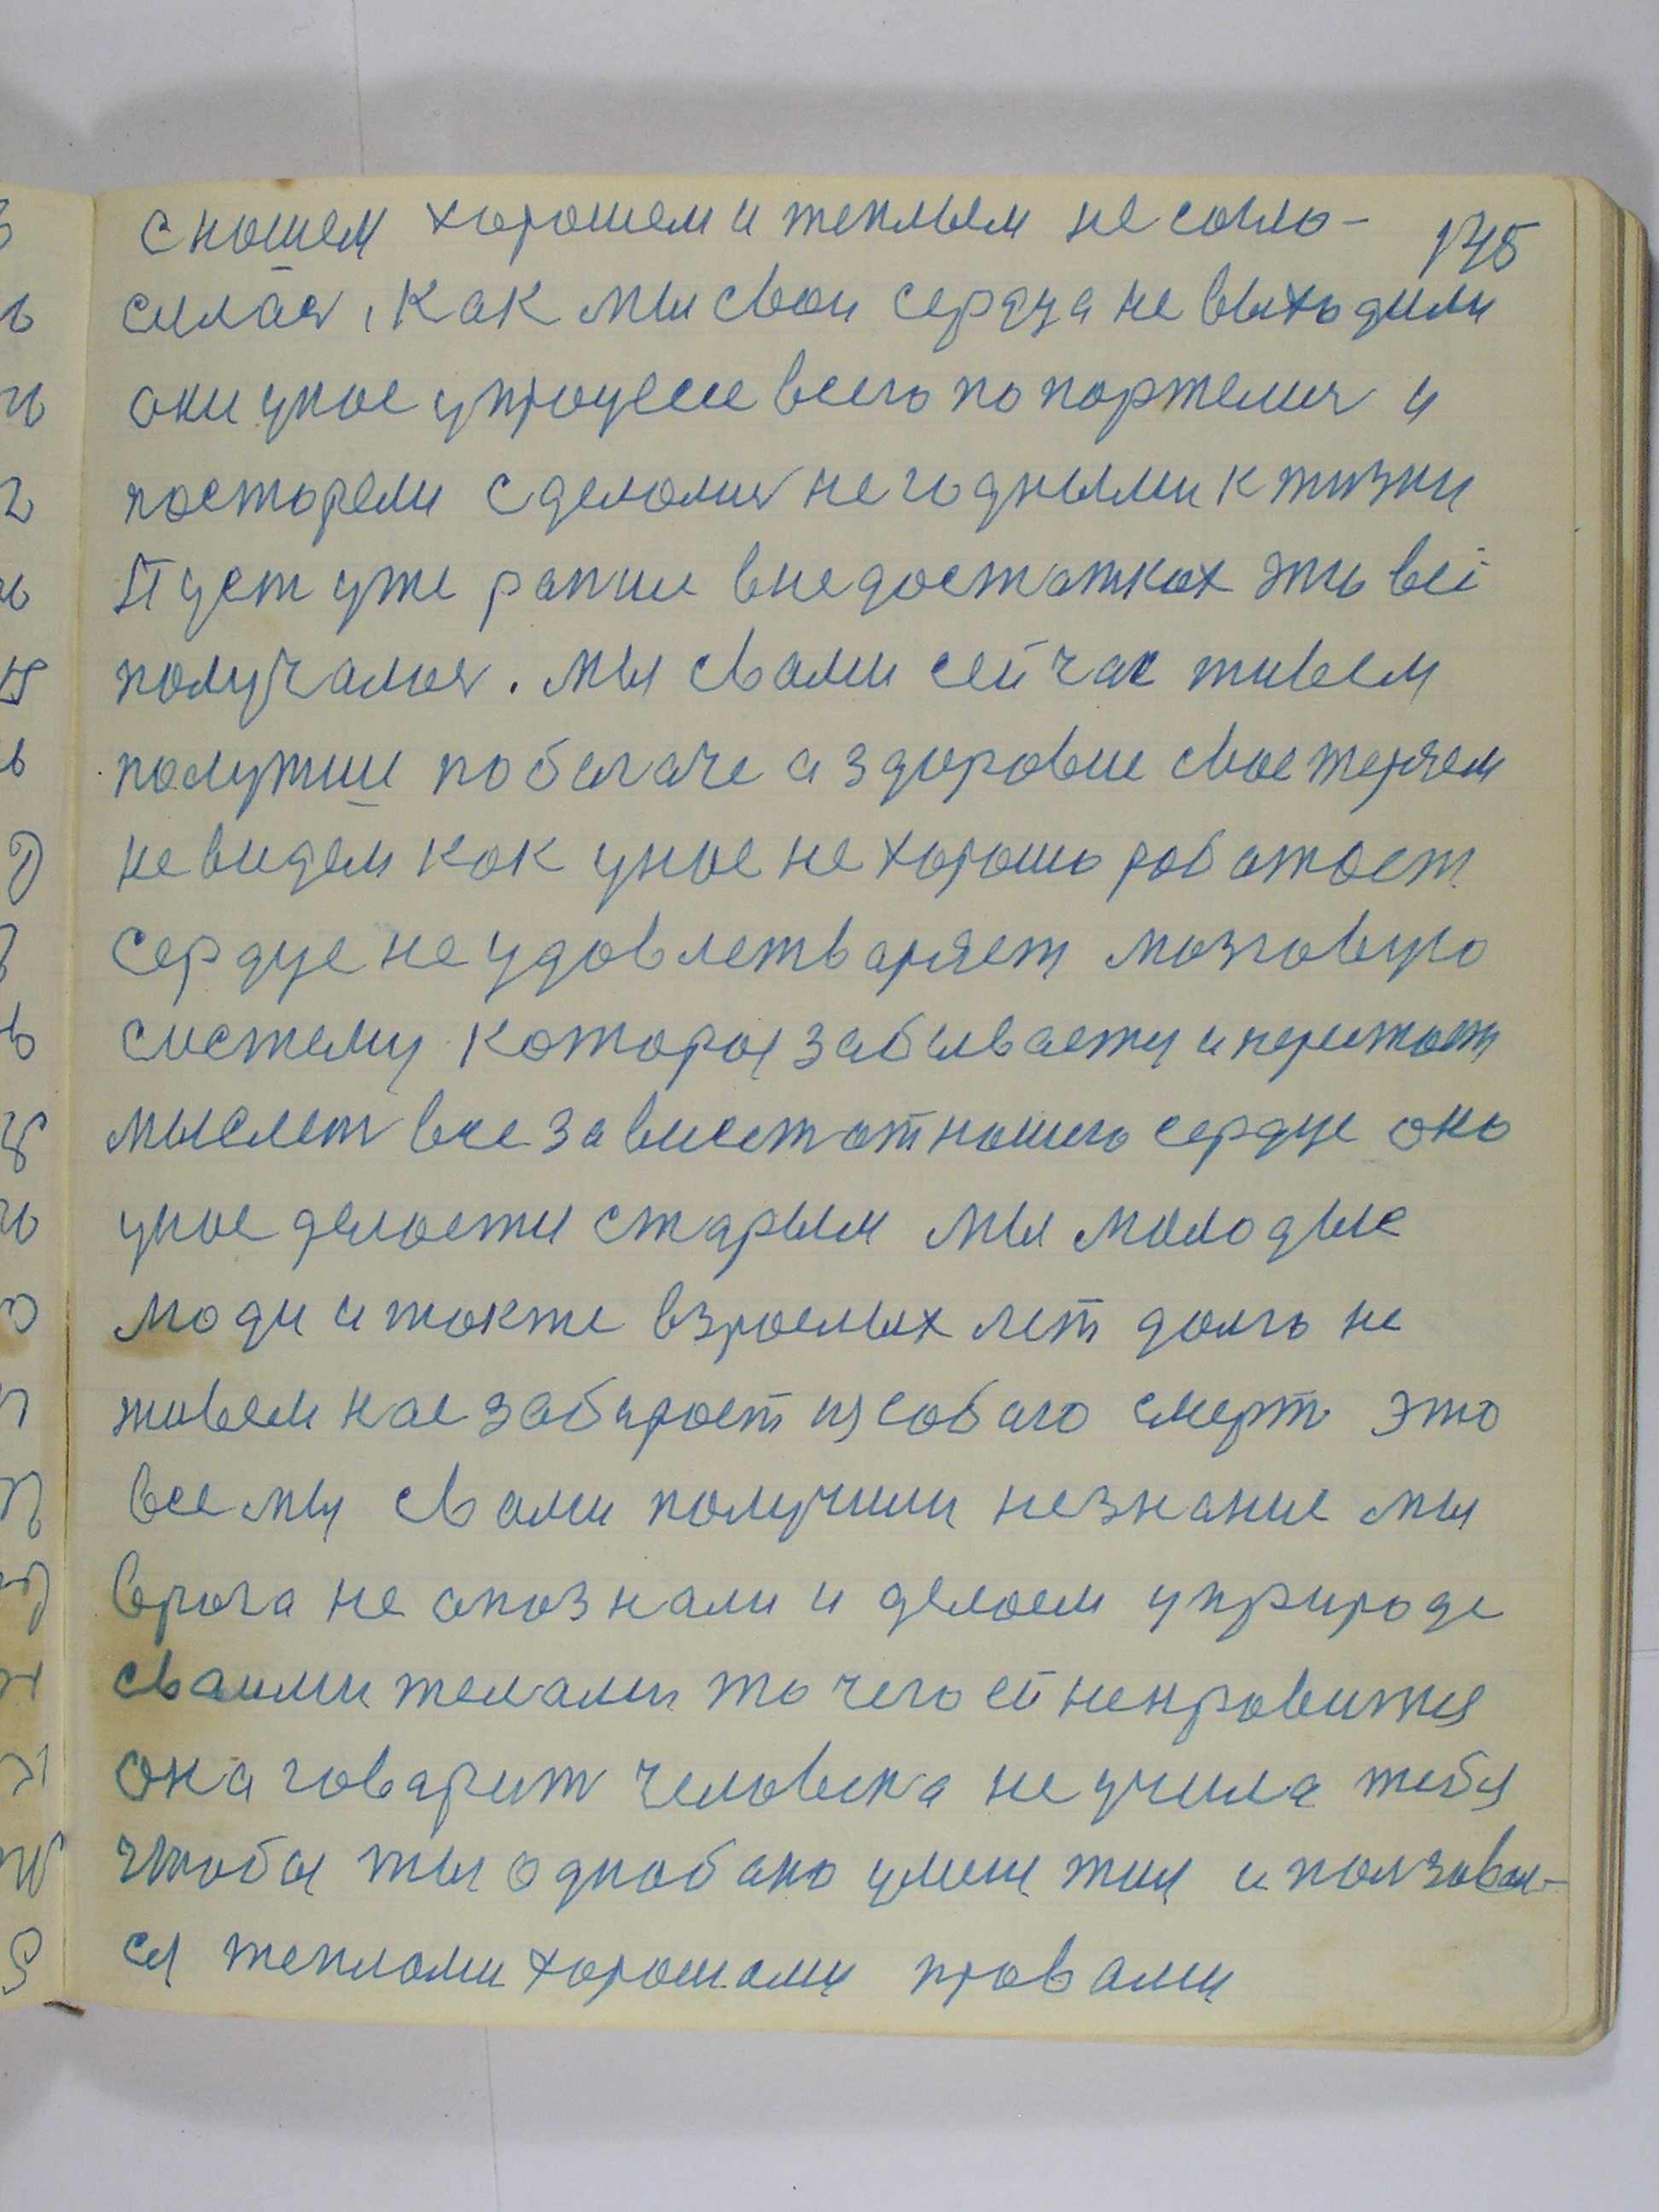 с нашем хорошем и теплым не согла-
175
силася, как мы свои сердца не выходили
они унас упроцесе всего попортелися и
постарели сделалися не годными к жизни
Пуст уже ранше внедостатках это всё
получалося. мы свами сейчас живем
полутше побагаче а здоровие свое теряем
не видем как унас не хорошо работает
сердце не удовлетваряет мозговую
систему которая забиваетця и перестает
мыслет все зависет от нашего сердце оно
унас делаетця старым мы молодые
люди и также взрослых лет долго не
живем нас забирает изсобаю смерт это
все мы свами получили незнание мы
врага не опознали и делаем уприроде
сваими телами то чего ей ненравитця
она говарит человека не учила тебя
чтобы ты однобако умеш жил и ползовал-
ся теплами хорошами правами